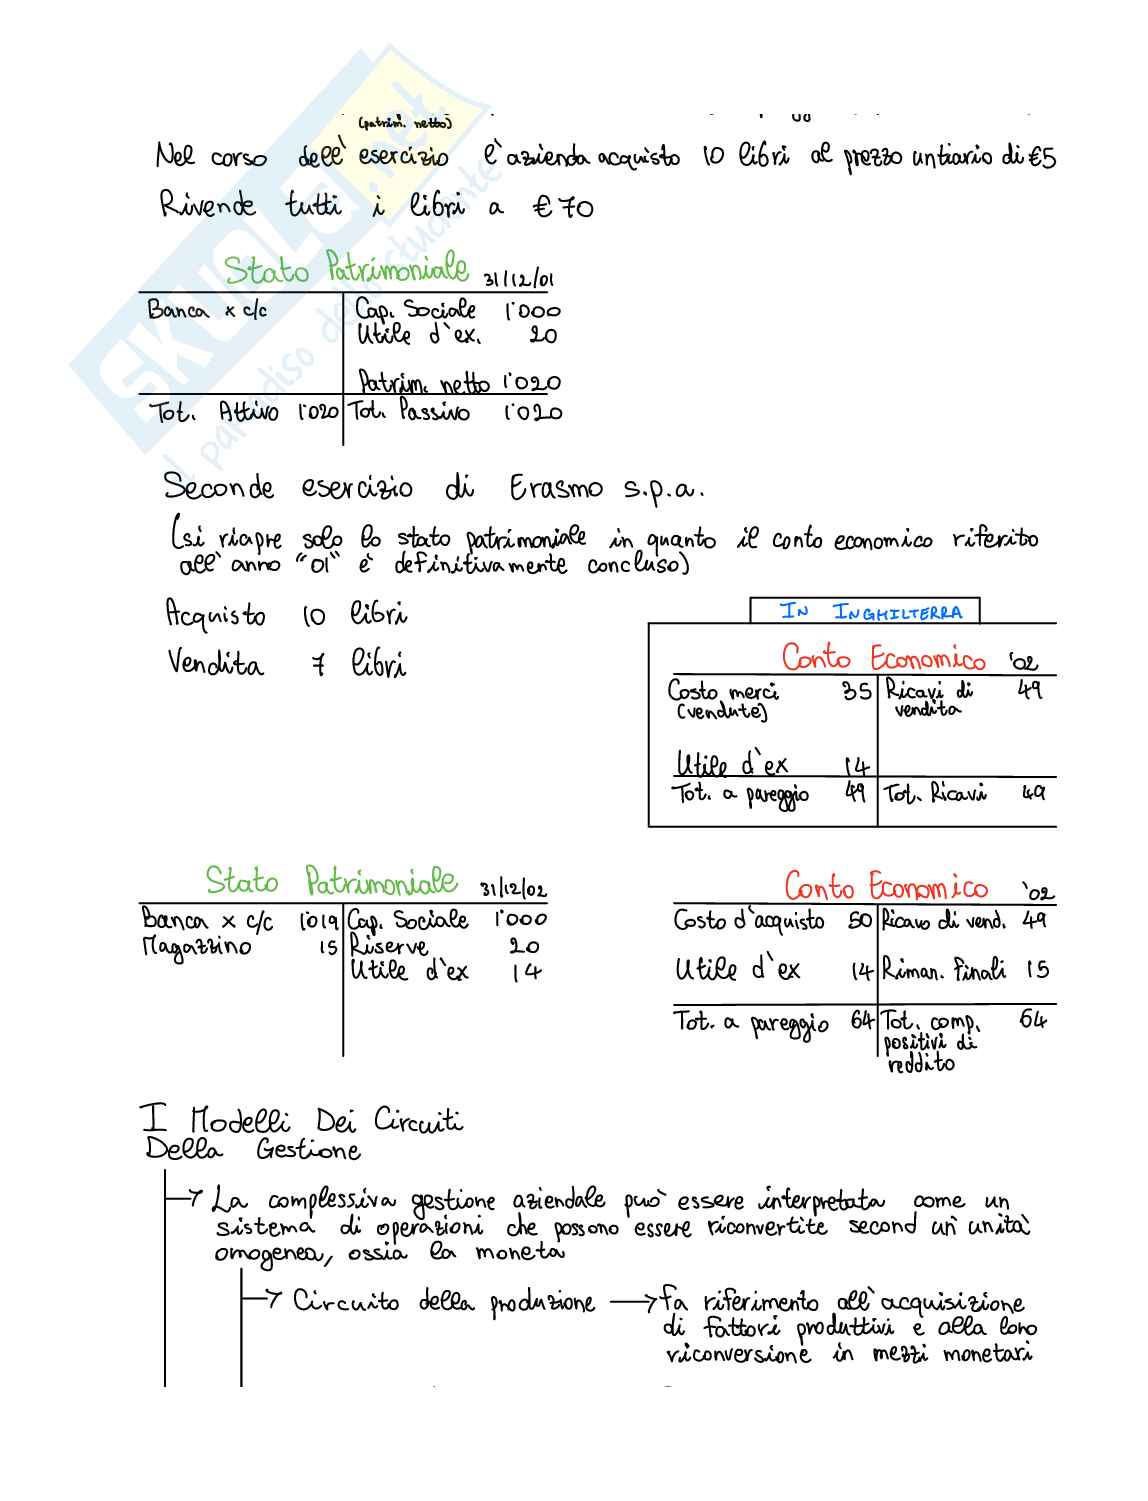 (patrim. netto)
Nel corso dell' esercizio l'azienda acquisto 10 libri al prezzo untiario di €5
Rivende tutti i libri a €70
Stato Patrimoniale 31/12/01
Banca x c/c Cap. Sociale 1'000
Utile d'ex. 20
Patrim. netto 1'020
Tot. Attivo 1'020 Tot. Passivo 1'020
Seconde esercizio di Erasmo s.p.a.
(si riapre solo lo stato patrimoniale in quanto il conto economico riferito
all'anno "01" è definitivamente concluso)
Acquisto 10 libri
Vendita 7 libri
In Inghilterra
Conto Economico '02
Costo merci 35 Ricavi di 49
(vendute) vendita
Utile d'ex 14
Tot. a pareggio 49 Tot. Ricavi 49
Stato Patrimoniale 31/12/02
Banca x c/c 1'019 Cap. Sociale 1'000
Magazzino 15 Riserve 20
Utile d'ex 14
Conto Economico '02
Costo d'acquisto 50 Ricavo di vend. 49
Utile d'ex 14 Riman. finali 15
Tot. a pareggio 64 Tot. comp. 64
positivi di
reddito
I Modelli Dei Circuiti
Della Gestione
→ La complessiva gestione aziendale può essere interpretata come un
sistema di operazioni che possono essere riconvertite second un'unità
omogenea, ossia la moneta
→ Circuito della produzione → fa riferimento all'acquisizione
di fattori produttivi e alla loro
riconversione in mezzi monetari
SKUOLA.net
il paradiso dello studente